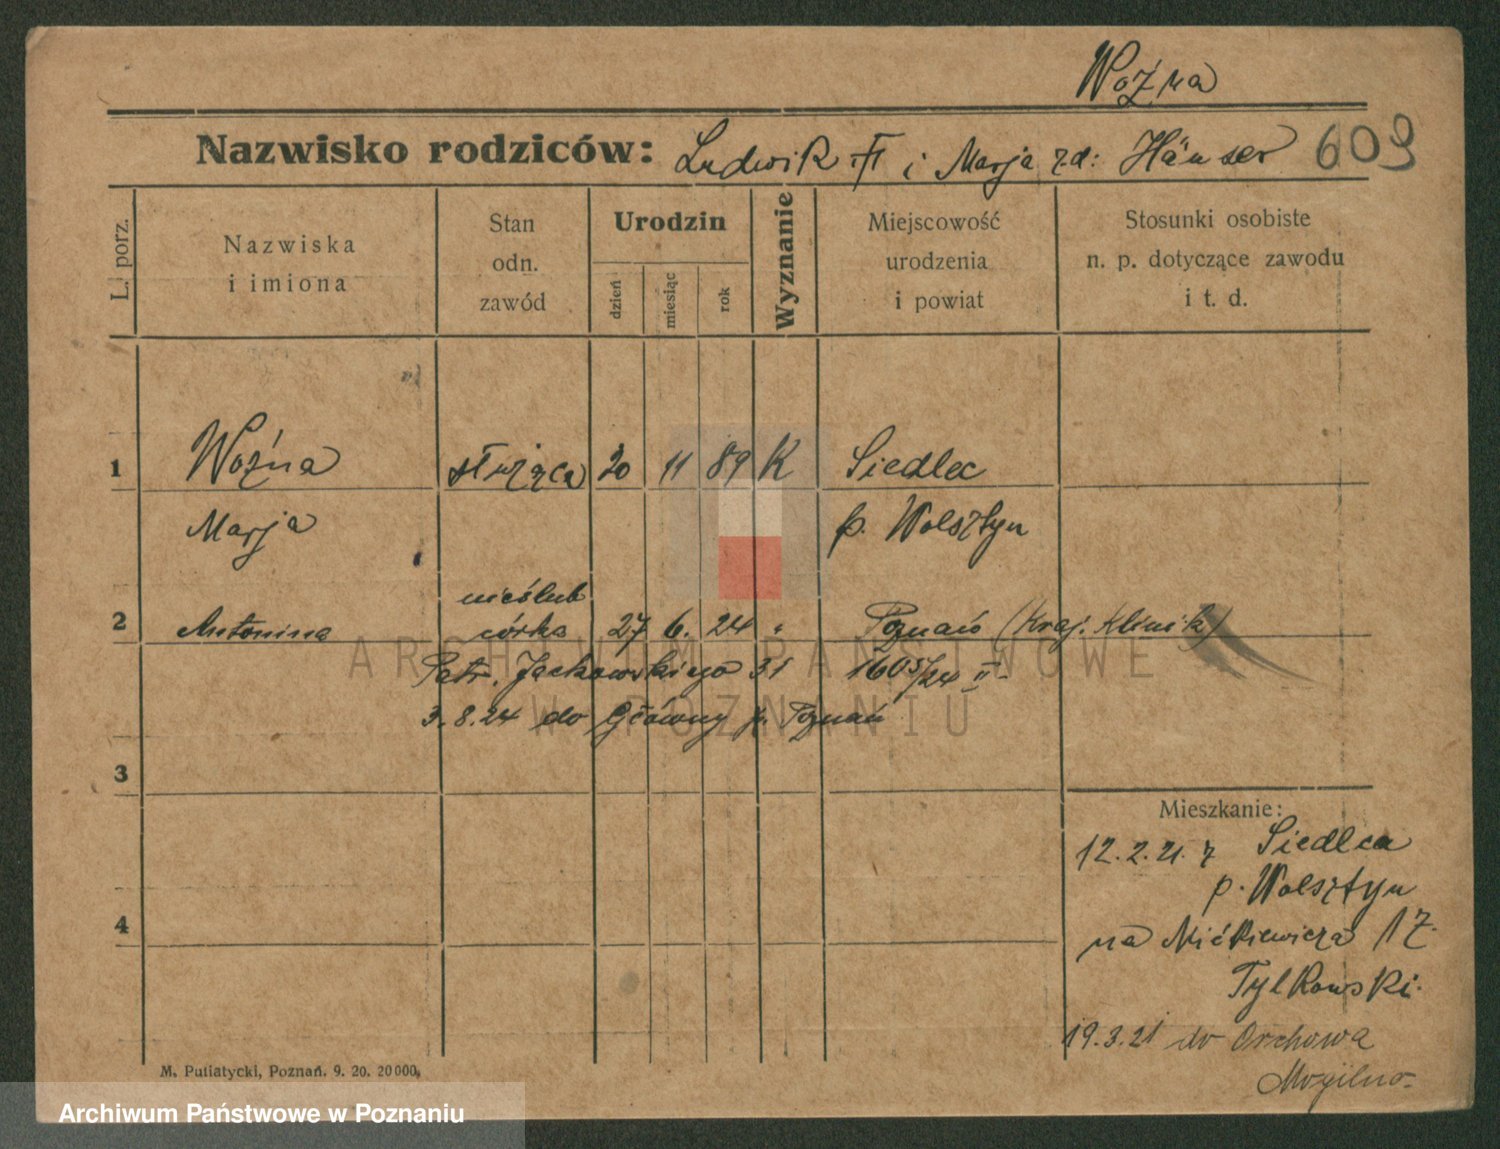 Woźna
Nazwisko rodziców: Ludwik i Marja zd: Hänser 609
L. porz.
Nazwiska i imiona
Stan odn. zawód
Urodzin
dzień
miesiąc
rok
Wyznanie
Miejscowość urodzenia i powiat
Stosunki osobiste n. p. dotyczące zawodu i t. d.
1 Woźna służąca 20 11 89 K Siedlec
Marja p. Wolsztyn
nieślub
2 Antonina córka 27 6. 24 " Poznań (Kraj. Klinik)
Patr. Jackowskiego 31 1605/24 II
3.8.24 do Główny p. Poznań
3
4
Mieszkanie:
12.2.21. z Siedlca
p. Wolsztyn
na Mickiewicza 17.
Tylkowski.
19.3.21 do Orchowa
Mogilno.
M. Putiatycki, Poznań. 9. 20. 20000.
ARCHIWUM PAŃSTWOWE
W POZNANIU
Archiwum Państwowe w Poznaniu